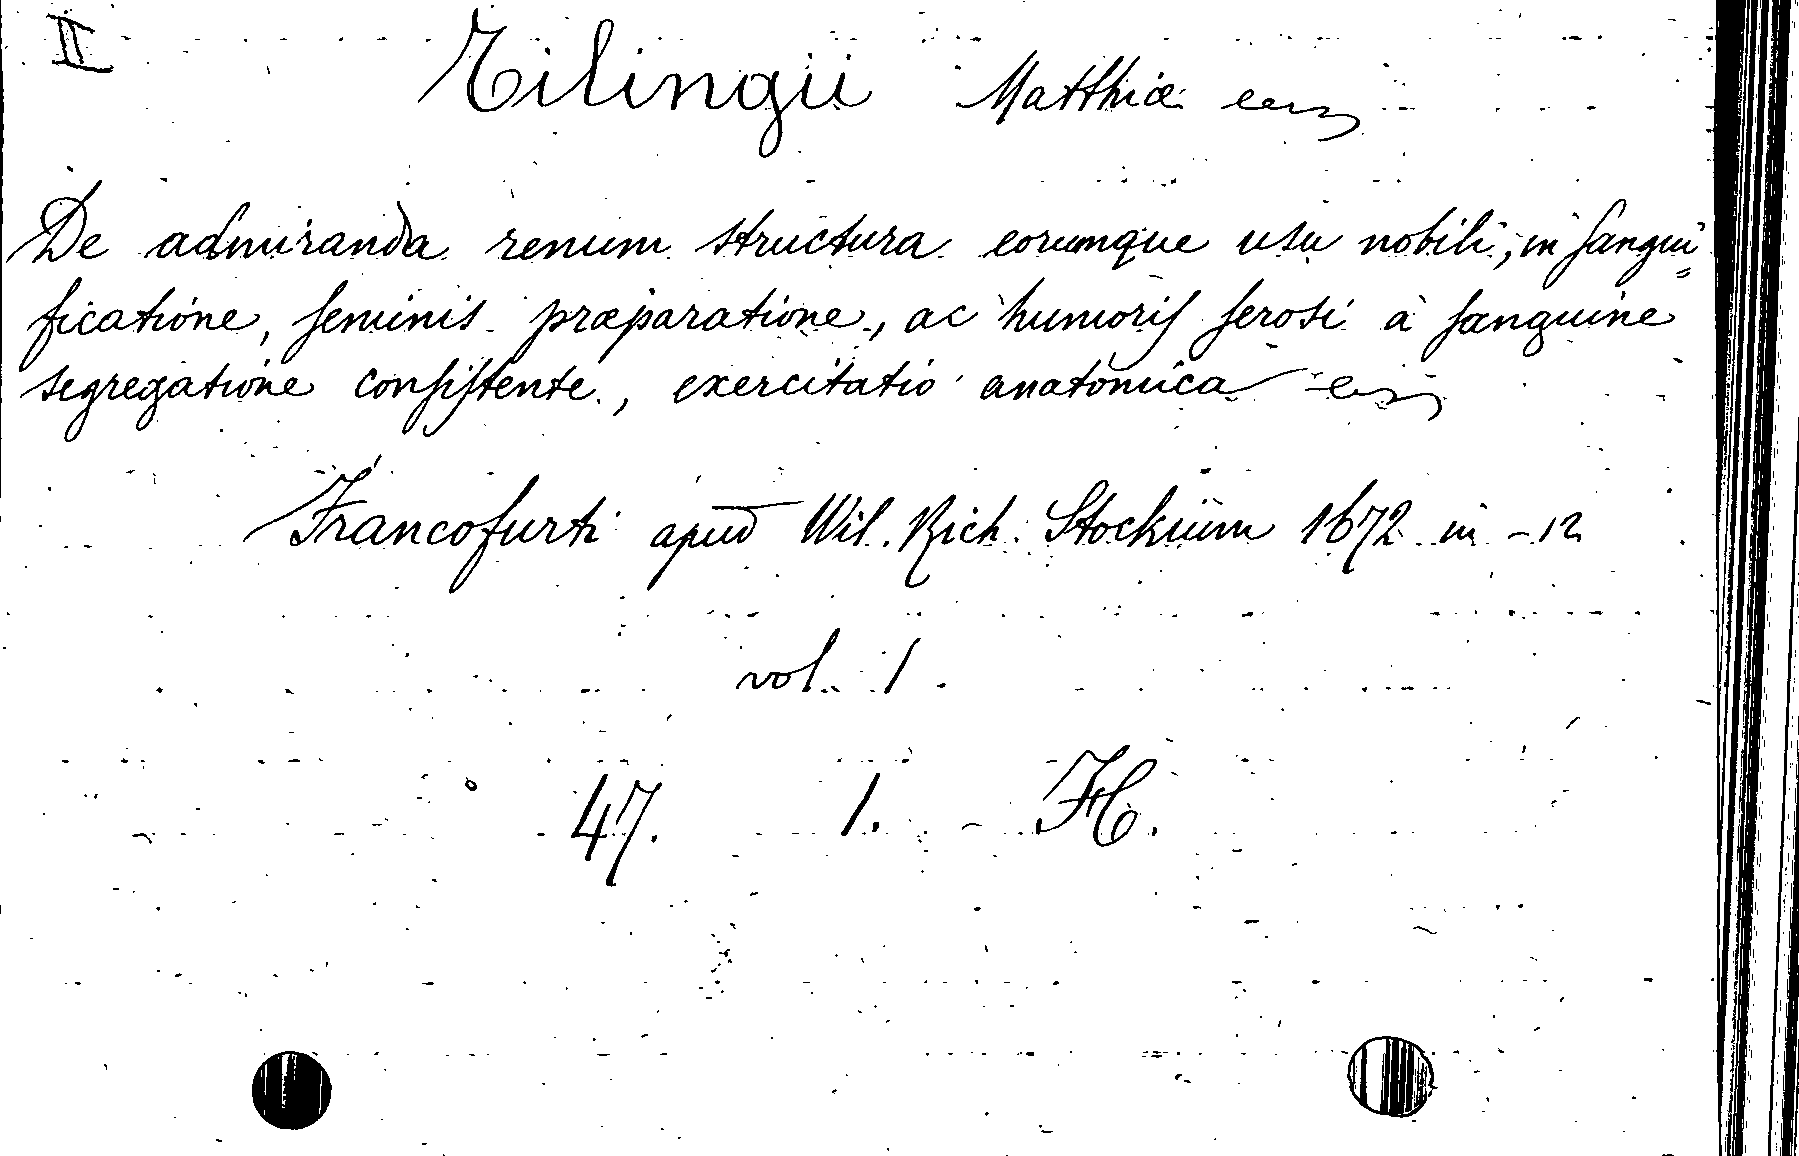 II
Tilingii Matthiæ
De admiranda renum structura eorumque usu nobili, in sangui=
ficatione, seminis præparatione, ac humoris serosi à sanguine
segregatione consistente, exercitatio anatomica
Francofurti apud Wil. Rich. Stockium 1672 in-12
vol. 1.
47. 1. H.